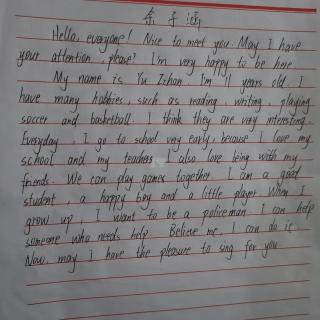 余子涵
Hello, everyone! Nice to meet you. May I have
your attention, please? I'm very happy to be here.
My name is Yu Zihan. I'm 11 years old. I
have many hobbies, such as reading, writing, playing
soccer and basketball. I think they are very interesting.
Everyday, I go to school very early, because I love my
school and my teachers. I also love being with my
friends. We can play games together. I am a good
student, a happy boy and a little player. When I
grow up, I want to be a policeman. I can help
someone who needs help. Believe me, I can do it.
Now, may I have the pleasure to sing for you